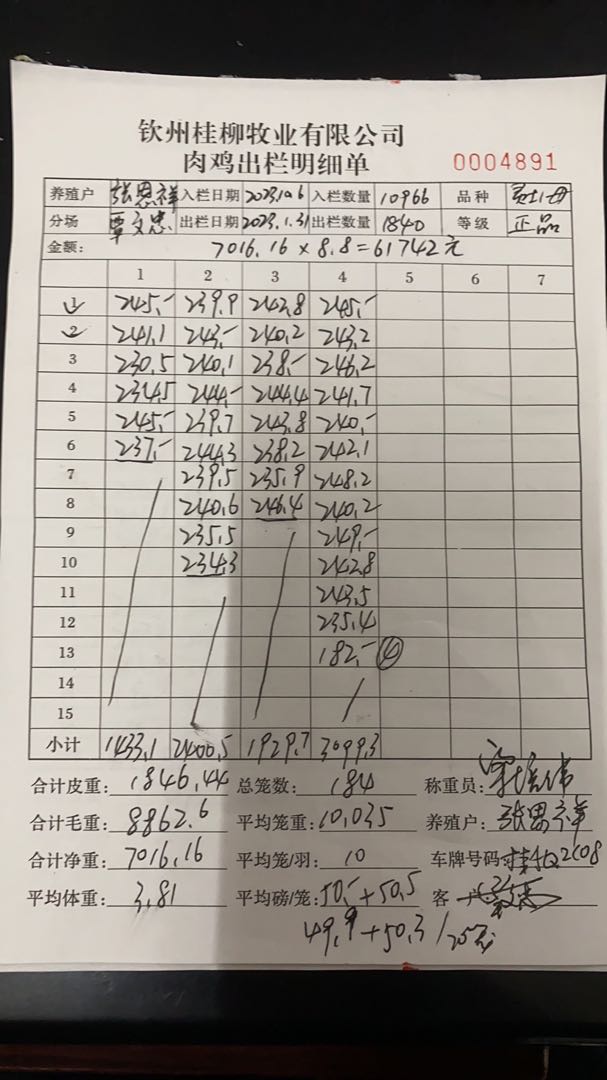 钦州桂柳牧业有限公司
肉鸡出栏明细单 0004891
养殖户 张恩祥 入栏日期 2023.10.6 入栏数量 10966 品种
分场 覃文忠 出栏日期 2023.1.31 出栏数量 1840 等级 正品
金额: 7016.16×8.8=61742元
1 2 3 4 5 6 7
1 245.- 239.9 242.8 245.-
2 241.1 243.- 240.2 243.2
3 230.5 240.1 238.- 246.2
4 234.5 244.- 244.4 241.7
5 245.- 239.7 243.8 240.-
6 237.- 244.3 238.2 242.1
7 239.5 235.9 248.2
8 240.6 246.4 240.2
9 235.5 249.-
10 234.3 242.8
11 243.5
12 235.4
13 182.- ④
14
15
小计 1433.1 2400.5 1929.7 3099.3
合计皮重: 1846.44 总笼数: 184 称重员:
合计毛重: 8862.6 平均笼重: 10.035 养殖户: 张恩祥
合计净重: 7016.16 平均笼/羽: 10 车牌号码
平均体重: 3.81 平均磅/笼: 50.-+50.5 客户
49.9+50.3/